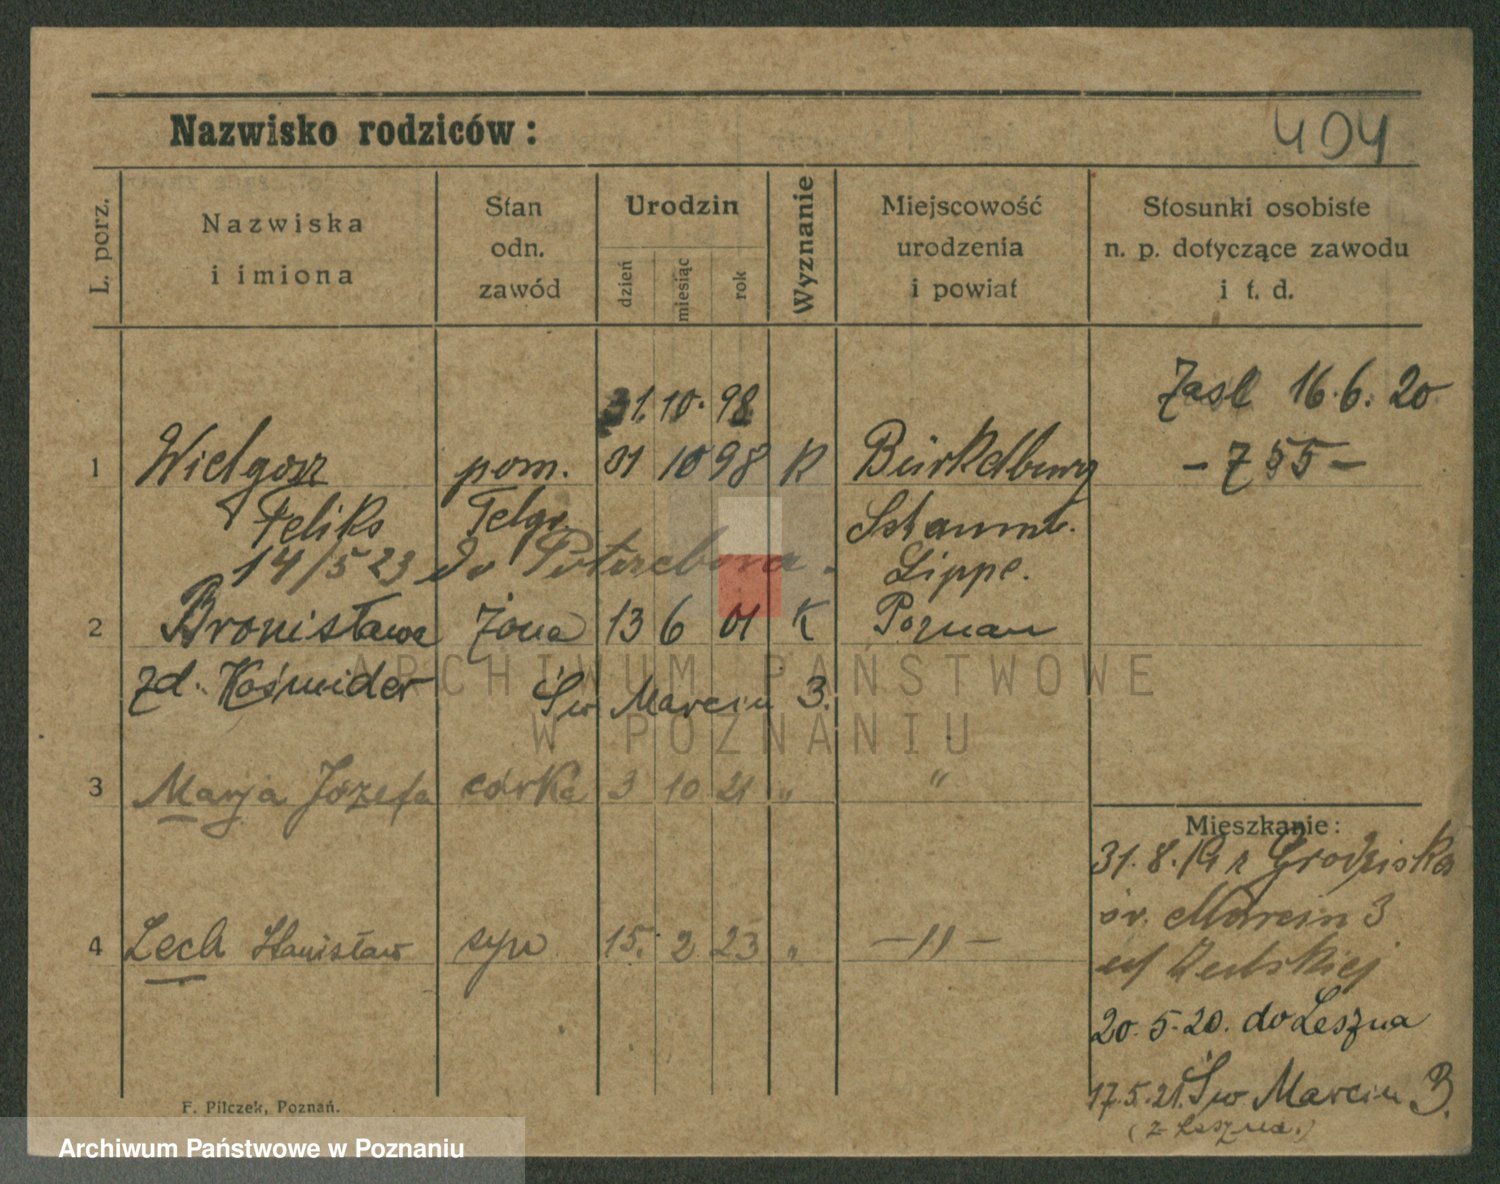 Nazwisko rodziców:
404
L. porz.
Nazwiska
i imiona
Stan
odn.
zawód
Urodzin
dzień
miesiąc
rok
Wyznanie
Miejscowość
urodzenia
i powiat
Stosunki osobiste
n. p. dotyczące zawodu
i t. d.
31. 10. 98
Zasł 16.6.20
1 Wielgosz pom. 31 10 98 K
- 755 -
Feliks Telgr.
14/5 23 do
Lippe.
2 Bronisława żona 13 6 01 K Poznań
zd. Kośmider Św Marcin 3.
3 Marja Józefa córka 3 10 21 " "
Mieszkanie:
31.8.19 z Grodziska
św. Marcin 3
4 Lech Stanisław syn 15. 2 23 " -"-
20.5.20. do Leszna
17.5.21. Św Marcin 3.
(z Leszna.)
F. Pilczek, Poznań.
ARCHIWUM PAŃSTWOWE
W POZNANIU
Archiwum Państwowe w Poznaniu